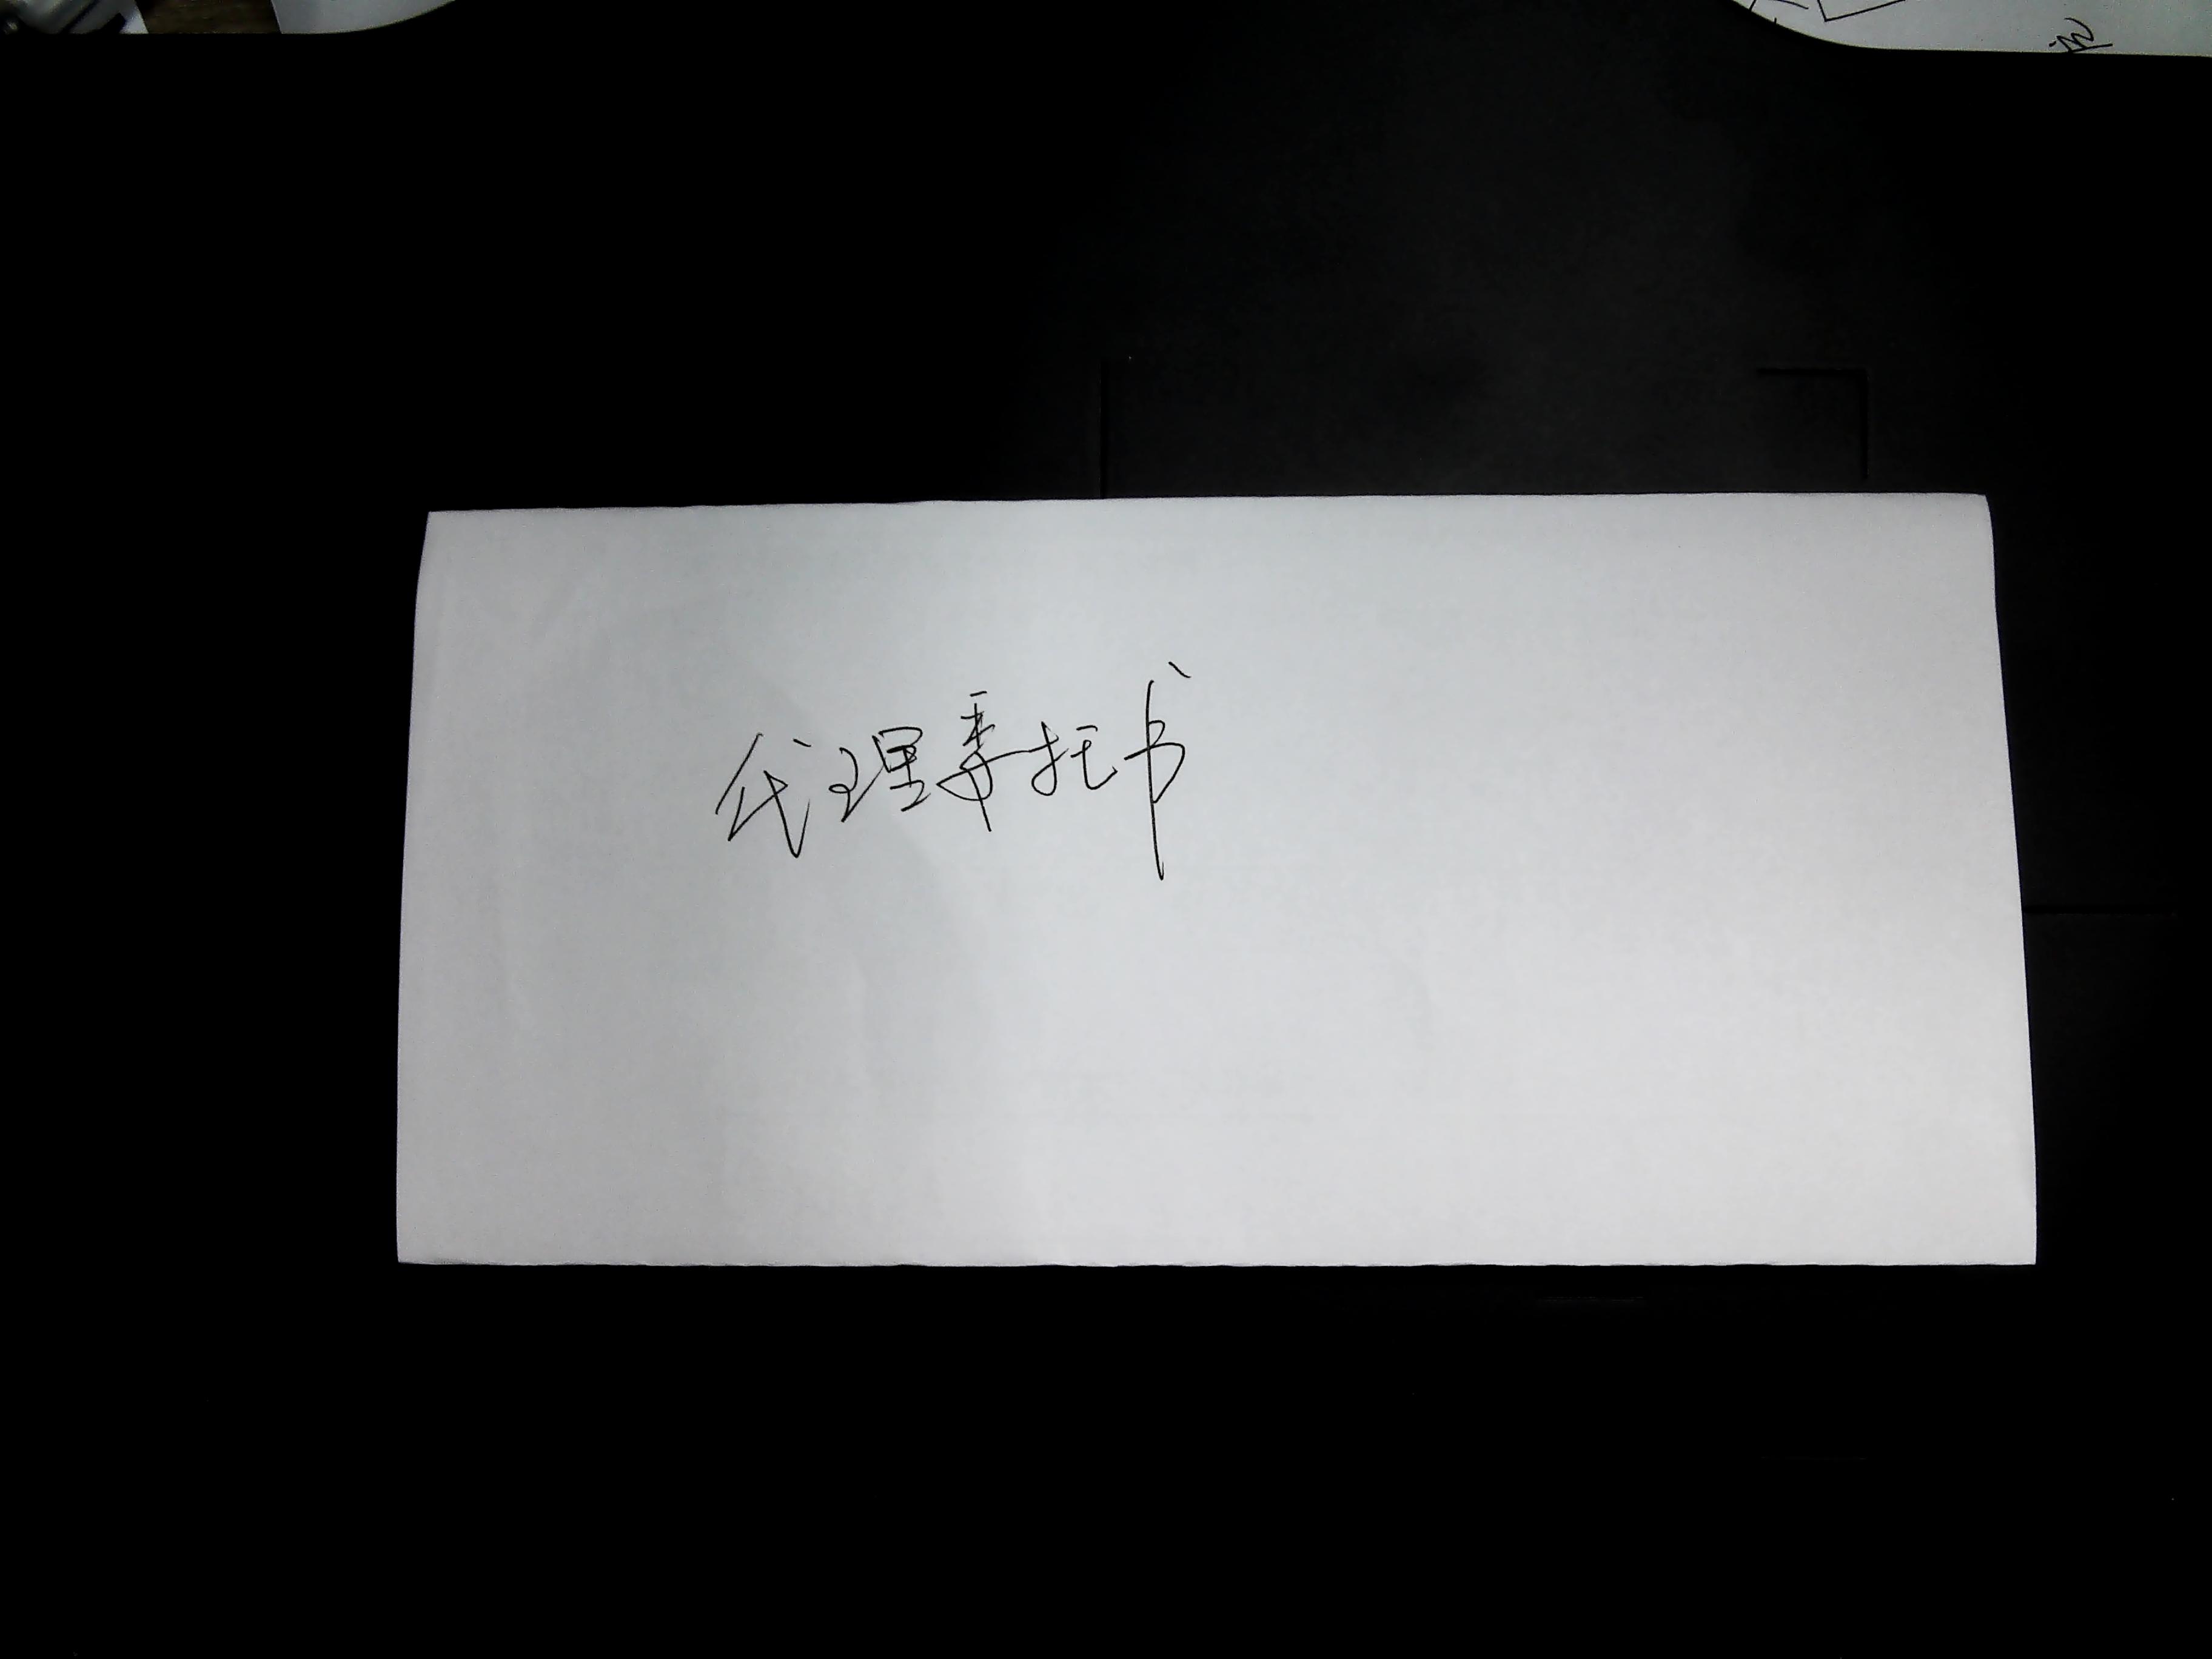 代理委托书